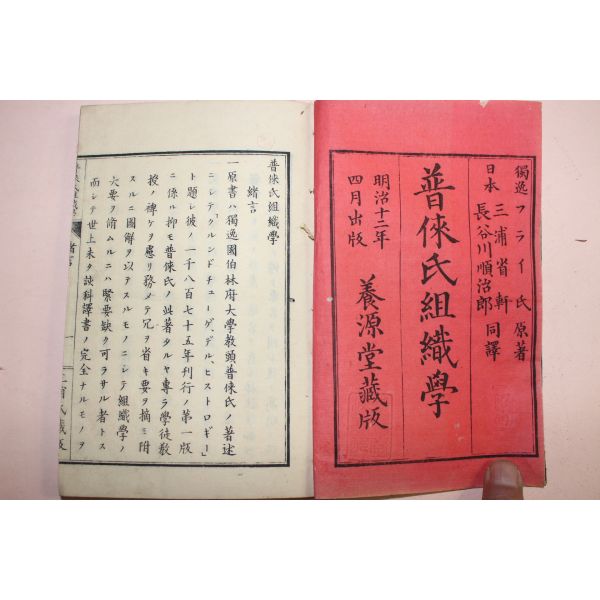 獨逸フライ氏原著
日本 三浦省軒
長谷川順治郎 同譯
普徠氏組織學
明治十二年
四月出版
養源堂藏版
普徠氏組織學
緒言
一原書ハ獨逸國伯林府大學教頭普徠氏ノ著述
ニシテクルンドチューゲ、デル、ヒストロギー」
ト題シ彼ノ一千八百七十五年刊行ノ第一版
ニ係ル抑モ普徠氏ノ此著タルヤ專ラ學徒教
授ノ裨ケヲ慮リ務メテ冗ヲ省キ要ヲ摘ミ附
スルニ圖解ヲ以テスルモノニシテ組織學ノ
大要ヲ脩ムルニハ緊要缺ク可ラサル者トス
而シテ世上未タ該科譯書ノ完全ナルモノヲ
緒言
三浦氏藏版